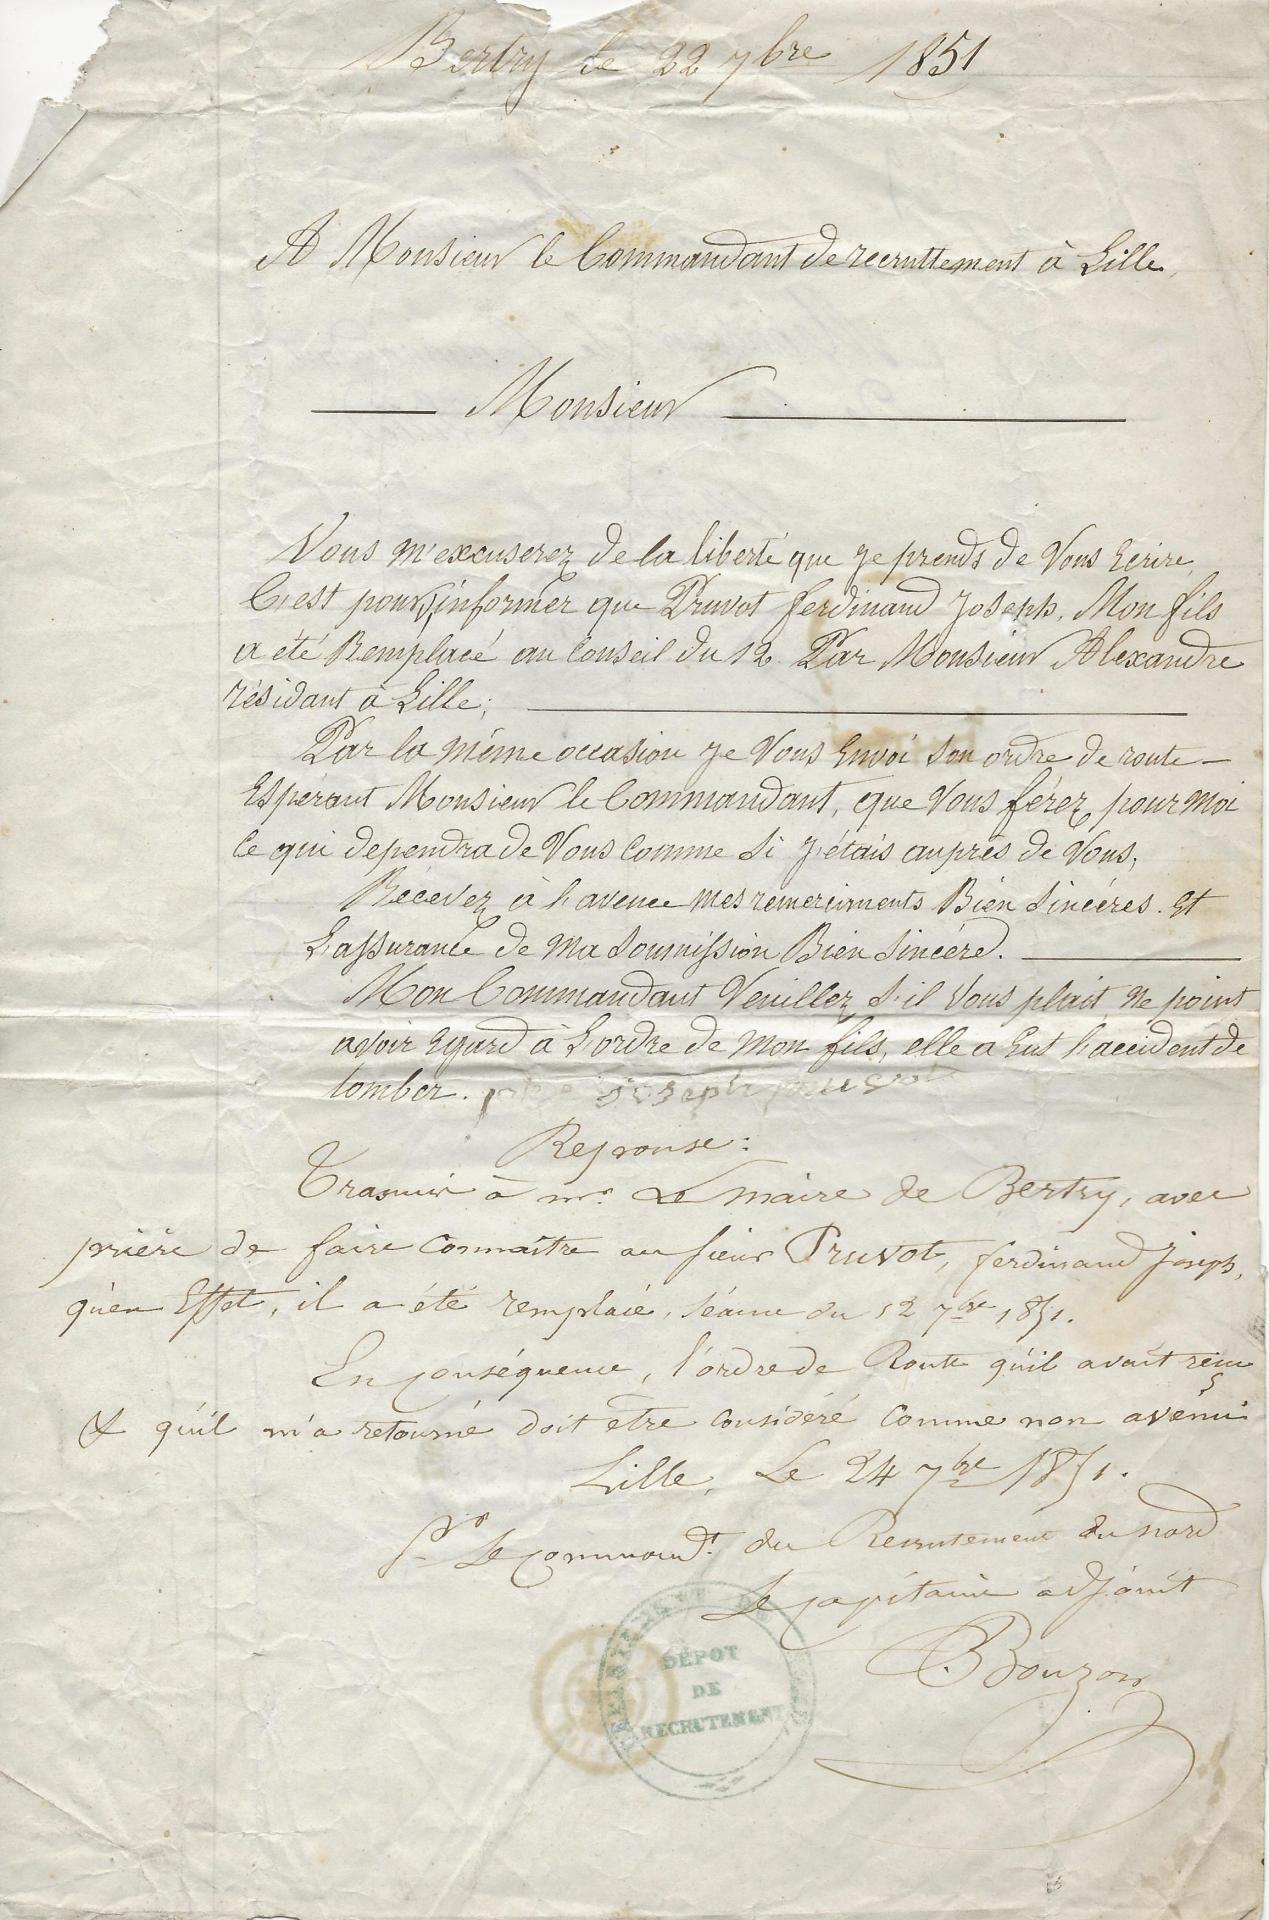 Bertry le 22 7bre 1851
A Monsieur le Commandant de recruttement à Lille,
Monsieur
Vous m'excuserez de la liberté que je prends de Vous Ecrire,
C'est pour s'informer que Pruvot ferdinand Joseph, Mon fils
a été Remplacé au Conseil du 12 Par Monsieur Alexandre
résidant à Lille;
Par la même occasion je Vous Envoi Son ordre de route
Espérant Monsieur le Commandant, que Vous férez pour moi
ce qui dependra de Vous Comme Si j'étais auprès de Vous,
Récevez à l'avence mes remerciments Bién Sincéres. Et
L'assurance de ma Soumission Bién Sincére.
Mon Commandant Veuillez S'il Vous plait, ne point
avoir Egard à L'ordre de mon fils, elle a Eut l'accident de
tomber. joseph pruvot
Reponse:
Trasmis à mr Le maire de Bertry, avec
prière de faire Connaître au sieur Pruvot, ferdinand Joseph,
qu'en Effet, il a été remplacé, Séance du 12 7bre 1851.
En Conséquence, l'ordre de Route qu'il avait reçu
& qu'il m'a retourné doit etre Considéré Comme non avenu
Lille, Le 24 7bre 1851.
Pr Le Commandt du Recrutement du nord
Le Capitaine adjoint
Bouzon
DÉPOT
DE
RECRUTEMENT